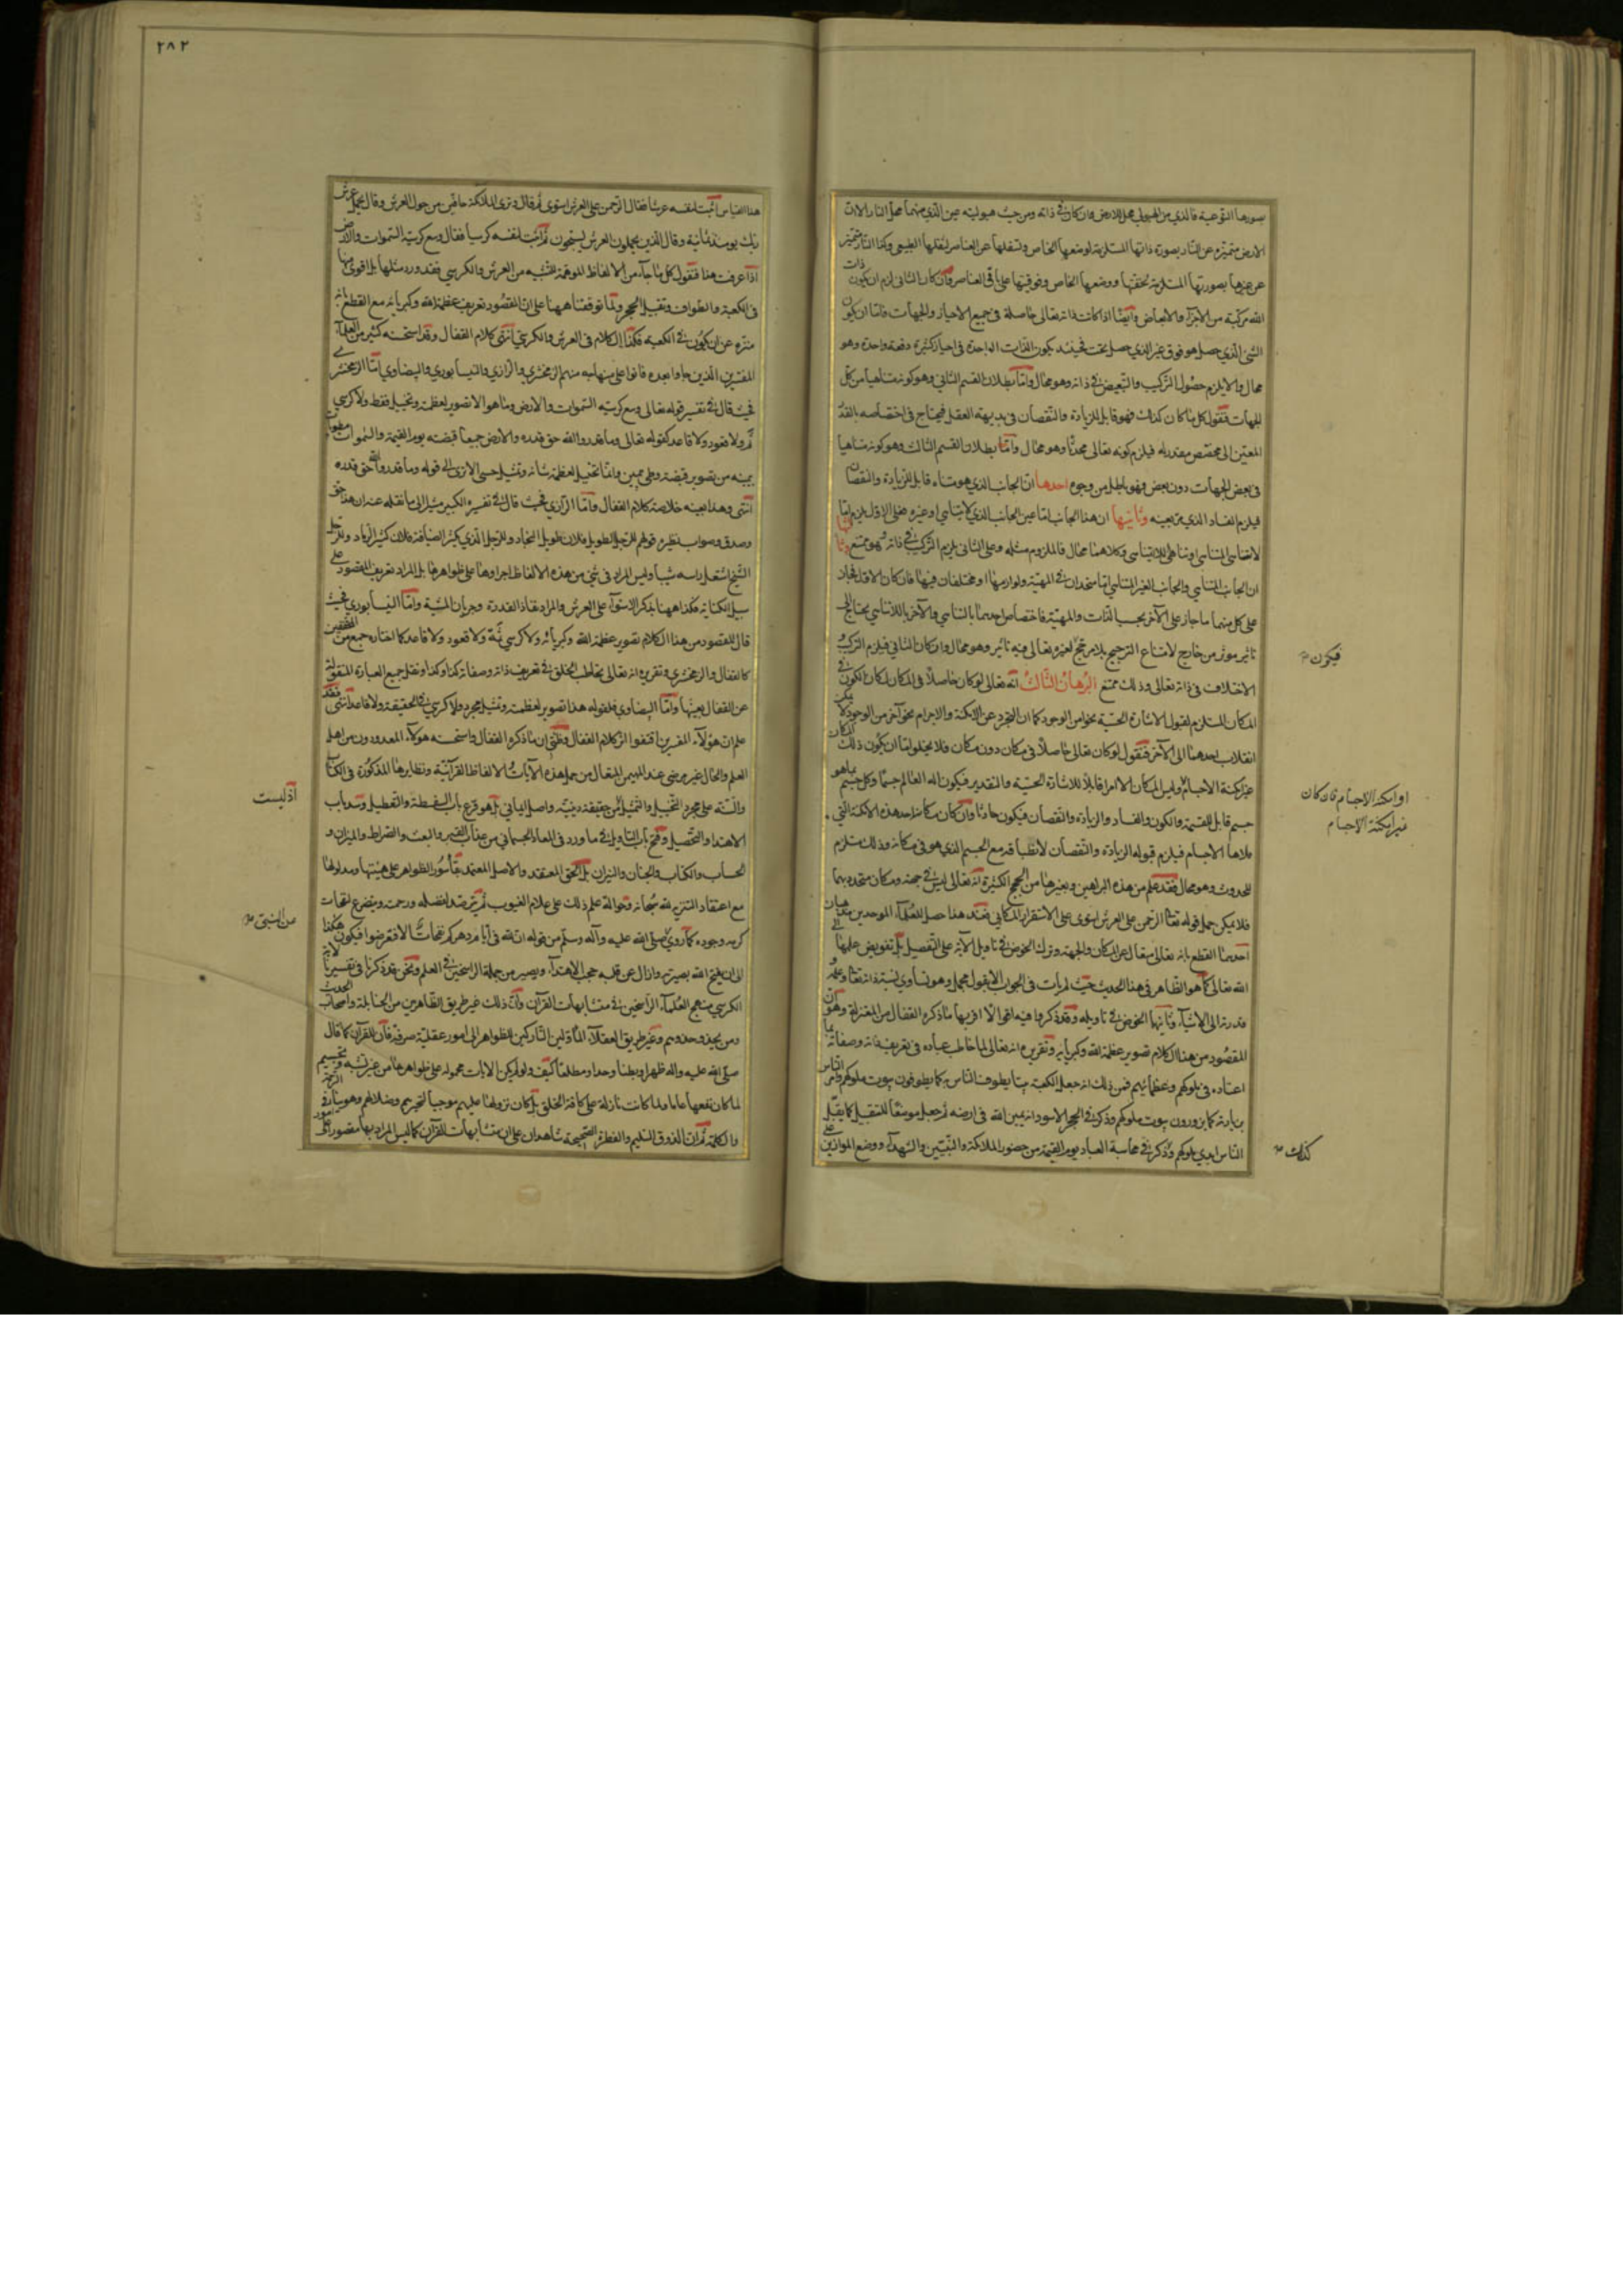 بصورها النوعية فالذي من الهيولى محل للارض وان كان في ذاته ومن حيث هيوليته عين الذي منهما محل النار الا ان
الارض متميزة عن النار بصورة ذاتها المستلزمة لوضعها الخاص وتسفلها عن العناصر لثقلها الطبيعي وكذا النار متميزة
عن غيرها بصورتها المستلزمة لخفتها ووضعها الخاص وفوقيتها على باقي العناصر وان كان الثاني لزم ان يكون ذات
الله مركبة من الاجزاء والابعاض وايضا اذا كانت ذاته تعالى حاصلة في جميع الاحياز والجهات فاما ان يكون
الشئ الذي حصل هو فوق غير الذي حصل تحت فحينئذ يكون الذات الواحدة في احياز كثيرة دفعة واحدة وهو
محال والا يلزم حصول التركيب والتبعيض في ذاته وهو محال واما بطلان القسم الثاني وهو كونه متناهيا من كل
الجهات فنقول كل ما كان كذلك فهو قابل للزيادة والنقصان في بديهة العقل فيحتاج في اختصاصه بالقدر
المعين الى مخصص مقدر له فيلزم كونه تعالى محدثا وهو محال واما بطلان القسم الثالث وهو كونه متناهيا
في بعض الجهات دون بعض فهو باطل من وجوه احدها ان الجانب الذي هو متناه قابل للزيادة والنقصان
فيلزم الفساد الذي مر بعينه وثانيها ان هذا الجانب اما عين الجانب الذي لا يتناهى او غيره فعلى الاول يلزم اما
لاتناهى المتناهي وتناهى اللامتناهى وكلاهما محال فالملزوم مثله وعلى الثاني يلزم التركيب في ذاته وهو ممتنع وثالثها
ان الجانب المتناهي والجانب الغير المتناهي اما متحدان في المهية ولوازمها او مختلفان فيها فان كان الاول فجاز
على كل منهما ما جاز على الآخر بحسب الذات والمهية فاختصاص احدهما بالتناهي والآخر باللاتناهي يحتاج الى
تاثير موثر من خارج لامتناع الترجيح بلا مرجح لغيره تعالى فيه تاثير وهو محال وان كان الثاني فيلزم التركب و
الاختلاف في ذاته تعالى وذلك ممتنع البرهان الثالث انه تعالى لو كان حاصلا في المكان لكان الكون في
المكان المستلزم لقبول الاشارة الحسية نحوا من الوجود كما ان التجرد عن الامكنة والاجرام نحو آخر من الوجود لا يمكن
انقلاب احدهما الى الآخر فنقول لو كان تعالى حاصلا في مكان دون مكان فلا يخلوا اما ان يكون ذلك المكان
غير امكنة الاجسام وليس المكان الا امرا قابلا للاشارة الحسية والتقدير فيكون اله العالم جسما وكل جسم بما هو
جسم قابل للقسمة والكون والفساد والزيادة والنقصان فيكون حادثا وان كان مكانه احد هذه الامكنة التي
ملأها الاجسام فيلزم قبوله الزيادة والنقصان لانطباقه مع الجسم الذي هو في مكانه وذلك مستلزم
للحدوث وهو محال فقد علم من هذه البراهين وبغيرها من الحجج الكثيرة انه تعالى ليس في جهة ومكان متحدد بهما
فلا يمكن حمل قوله تعالى الرحمن على العرش استوى على الاستقرار المكاني فعند هذا حصل للعلماء الموحدين مذهبان
احدهما القطع بانه تعالى متعال عن المكان والجهة وترك الخوض في تاويل الآية على التفصيل بل تفويض علمها الى
الله تعالى كما هو الظاهر في هذا الحديث حيث لم يات في الجواب الا بقول مجمل وهو تساوي نسبة ذاته تعالى وعلمه و
قدرته الى الاشياء وثانيهما الخوض في تاويله وقد ذكروا فيه اقوالا اقربها ما ذكره القفال من المعتزلة وهو ان
المقصود من هذا الكلام تصوير عظمة الله وكبريائه وتقريره انه تعالى لما خاطب عباده في تعريف ذاته وصفاته بما
اعتادوه في ملوكهم وعظمائهم فمن ذلك انه جعل الكعبة بيتا يطوف الناس به كما يطوفون بيوت ملوكهم وامر الناس
بزيارته كما يزورون بيوت ملوكهم وذكر في الحجر الاسود انه يمين الله في ارضه ثم جعل موضعا للتقبيل كما يقبل
الناس ايدي ملوكهم وذكر في محاسبة العباد يوم القيمة من حضور الملائكة والنبيين والشهداء ووضع الموازين على
فيكون
او امكنة الاجسام فان كان
غير امكنة الاجسام
كذلك
٢٨٢
هذا القياس اثبت لنفسه عرشا فقال الرحمن على العرش استوى ثم قال وترى الملائكة حافين من حول العرش وقال يحمل عرش
ربك يومئذ ثمانية وقال الذين يحملون العرش يسبحون ثم اثبت لنفسه كرسيا فقال وسع كرسيه السموات والارض
اذا عرفت هذا فنقول كل ما جاء من الالفاظ الموهمة للتشبيه من العرش والكرسي فقد ورد مثلها بل اقوى منها
في الكعبة والطواف وتقبيل الحجر ولما توقفنا ههنا على ان المقصود تعريف عظمة الله وكبريائه مع القطع بانه
منزه عن ان يكون في الكعبة فكذا الكلام في العرش والكرسي انتهى كلام القفال وقد استحسنه كثير من العلماء
المفسرين الذين جاوا بعده فانوا على منهاجه منهم الزمخشري والرازي والنيسابوري والبيضاوي اما الزمخشري
فحيث قال في تفسير قوله تعالى وسع كرسيه السموات والارض وما هو الا تصوير لعظمته وتخييل فقط ولا كرسي
ثم ولا قعود ولا قاعد كقوله تعالى وما قدروا الله حق قدره والارض جميعا قبضته يوم القيمة والسموات مطويات
بيمينه من تصوير قبضة وطي ويمين وانما تخييل لعظمة شانه وتمثيل حسي الا ترى الى قوله وما قدروا الله حق قدره
انتهى وهذا بعينه خلاصة كلام القفال واما الرازي فحيث قال في تفسير الكبير مشيرا الى ما نقله عنه ان هذا حق
وصدق وصواب نظيره قولهم للرجل الطويل فلان طويل النجاد وللرجل الذي يكثر الضيافة فلان كثير الرماد وللرجل
الشيخ اشتعل راسه شيبا وليس المراد في شئ من هذه الالفاظ اجراؤها على ظواهرها بل المراد تعريف المقصود على
سبيل الكناية فكذا ههنا يذكر الاستواء على العرش والمراد نفاذ القدرة وجريان المشية واما النيسابوري فحيث
قال المقصود من هذا الكلام تصوير عظمة الله وكبريائه ولا كرسي ثمة ولا قعود ولا قاعد كما اختاره جمع من المحققين
كالقفال والزمخشري وتقريره انه تعالى يخاطب الخلق في تعريف ذاته وصفاته كذا وكذا ونقل جميع العبارة المنقولة
عن القفال بعينها واما البيضاوي فلقوله هذا تصوير لعظمته وتمثيل مجرد ولا كرسي في الحقيقة ولا قاعد انتهى فقد
علم ان هؤلاء المفسرين اقتفوا اثر كلام القفال وظني ان ما ذكره القفال واستحسنه هولاء المعدودون من اهل
العلم والحال غير مرضي عند المهيمن المتعال من حمل هذه الآيات والالفاظ القرآنية ونظايرها المذكورة في الكتاب
والسنة على مجرد التخييل والتمثيل من حقيقة دينية واصل ايماني بل هو قرع باب السفسطة والتعطيل وسد باب
الاهتداء والتحصيل وفتح باب التاويل في ما ورد في المعاد الجسماني من عذاب القبر والبعث والصراط والميزان و
الحساب والكتاب والجنان والنيران بل الحق المعتقد والاصل المعتمد بقاء صور الظواهر على هيئتها ومدلولها
مع اعتقاد التنزيه لله سبحانه وحوالة علم ذلك على علام الغيوب ثم يترصد لفضله ورحمته ويتضرع لنفحات
كرمه وجوده كما روي صلى الله عليه وآله وسلم من قوله ان لله في ايام دهركم نفحات الا فتعرضوا فيكون هكذا
الى ان يفتح الله بصيرته وازال عن قلبه حجب الاهتداء ويصير من جملة الراسخين في العلم ونحن قد ذكرنا في تفسيرنا لآية
الكرسي منهج العلماء الراسخين في متشابهات القرآن وان ذلك غير طريق الظاهرين من الحنابلة واصحاب الحديث
ومن يحذو حذوهم وغير طريق العقلاء المأولين التاركين الظواهر الى امور عقلية صرفة فان للقرآن كما قال
صلى الله عليه واله ظهرا وبطنا وحدا ومطلعا كيف ولو لم يكن الايات محمولة على ظواهرها من غير تشبيه وتجسيم
لما كان نفعها عاما ولما كانت نازلة على كافة الخلق بل كان نزولها عليهم موجبا لتحيرهم وضلالهم وهو ينافي الرحمة
والحكمة ثم ان الذوق السليم والفطرة الصحيحة شاهدان على ان متشابهات القرآن كما ليس المراد بها مقصورا على امور
اذ ليست
عن النبي